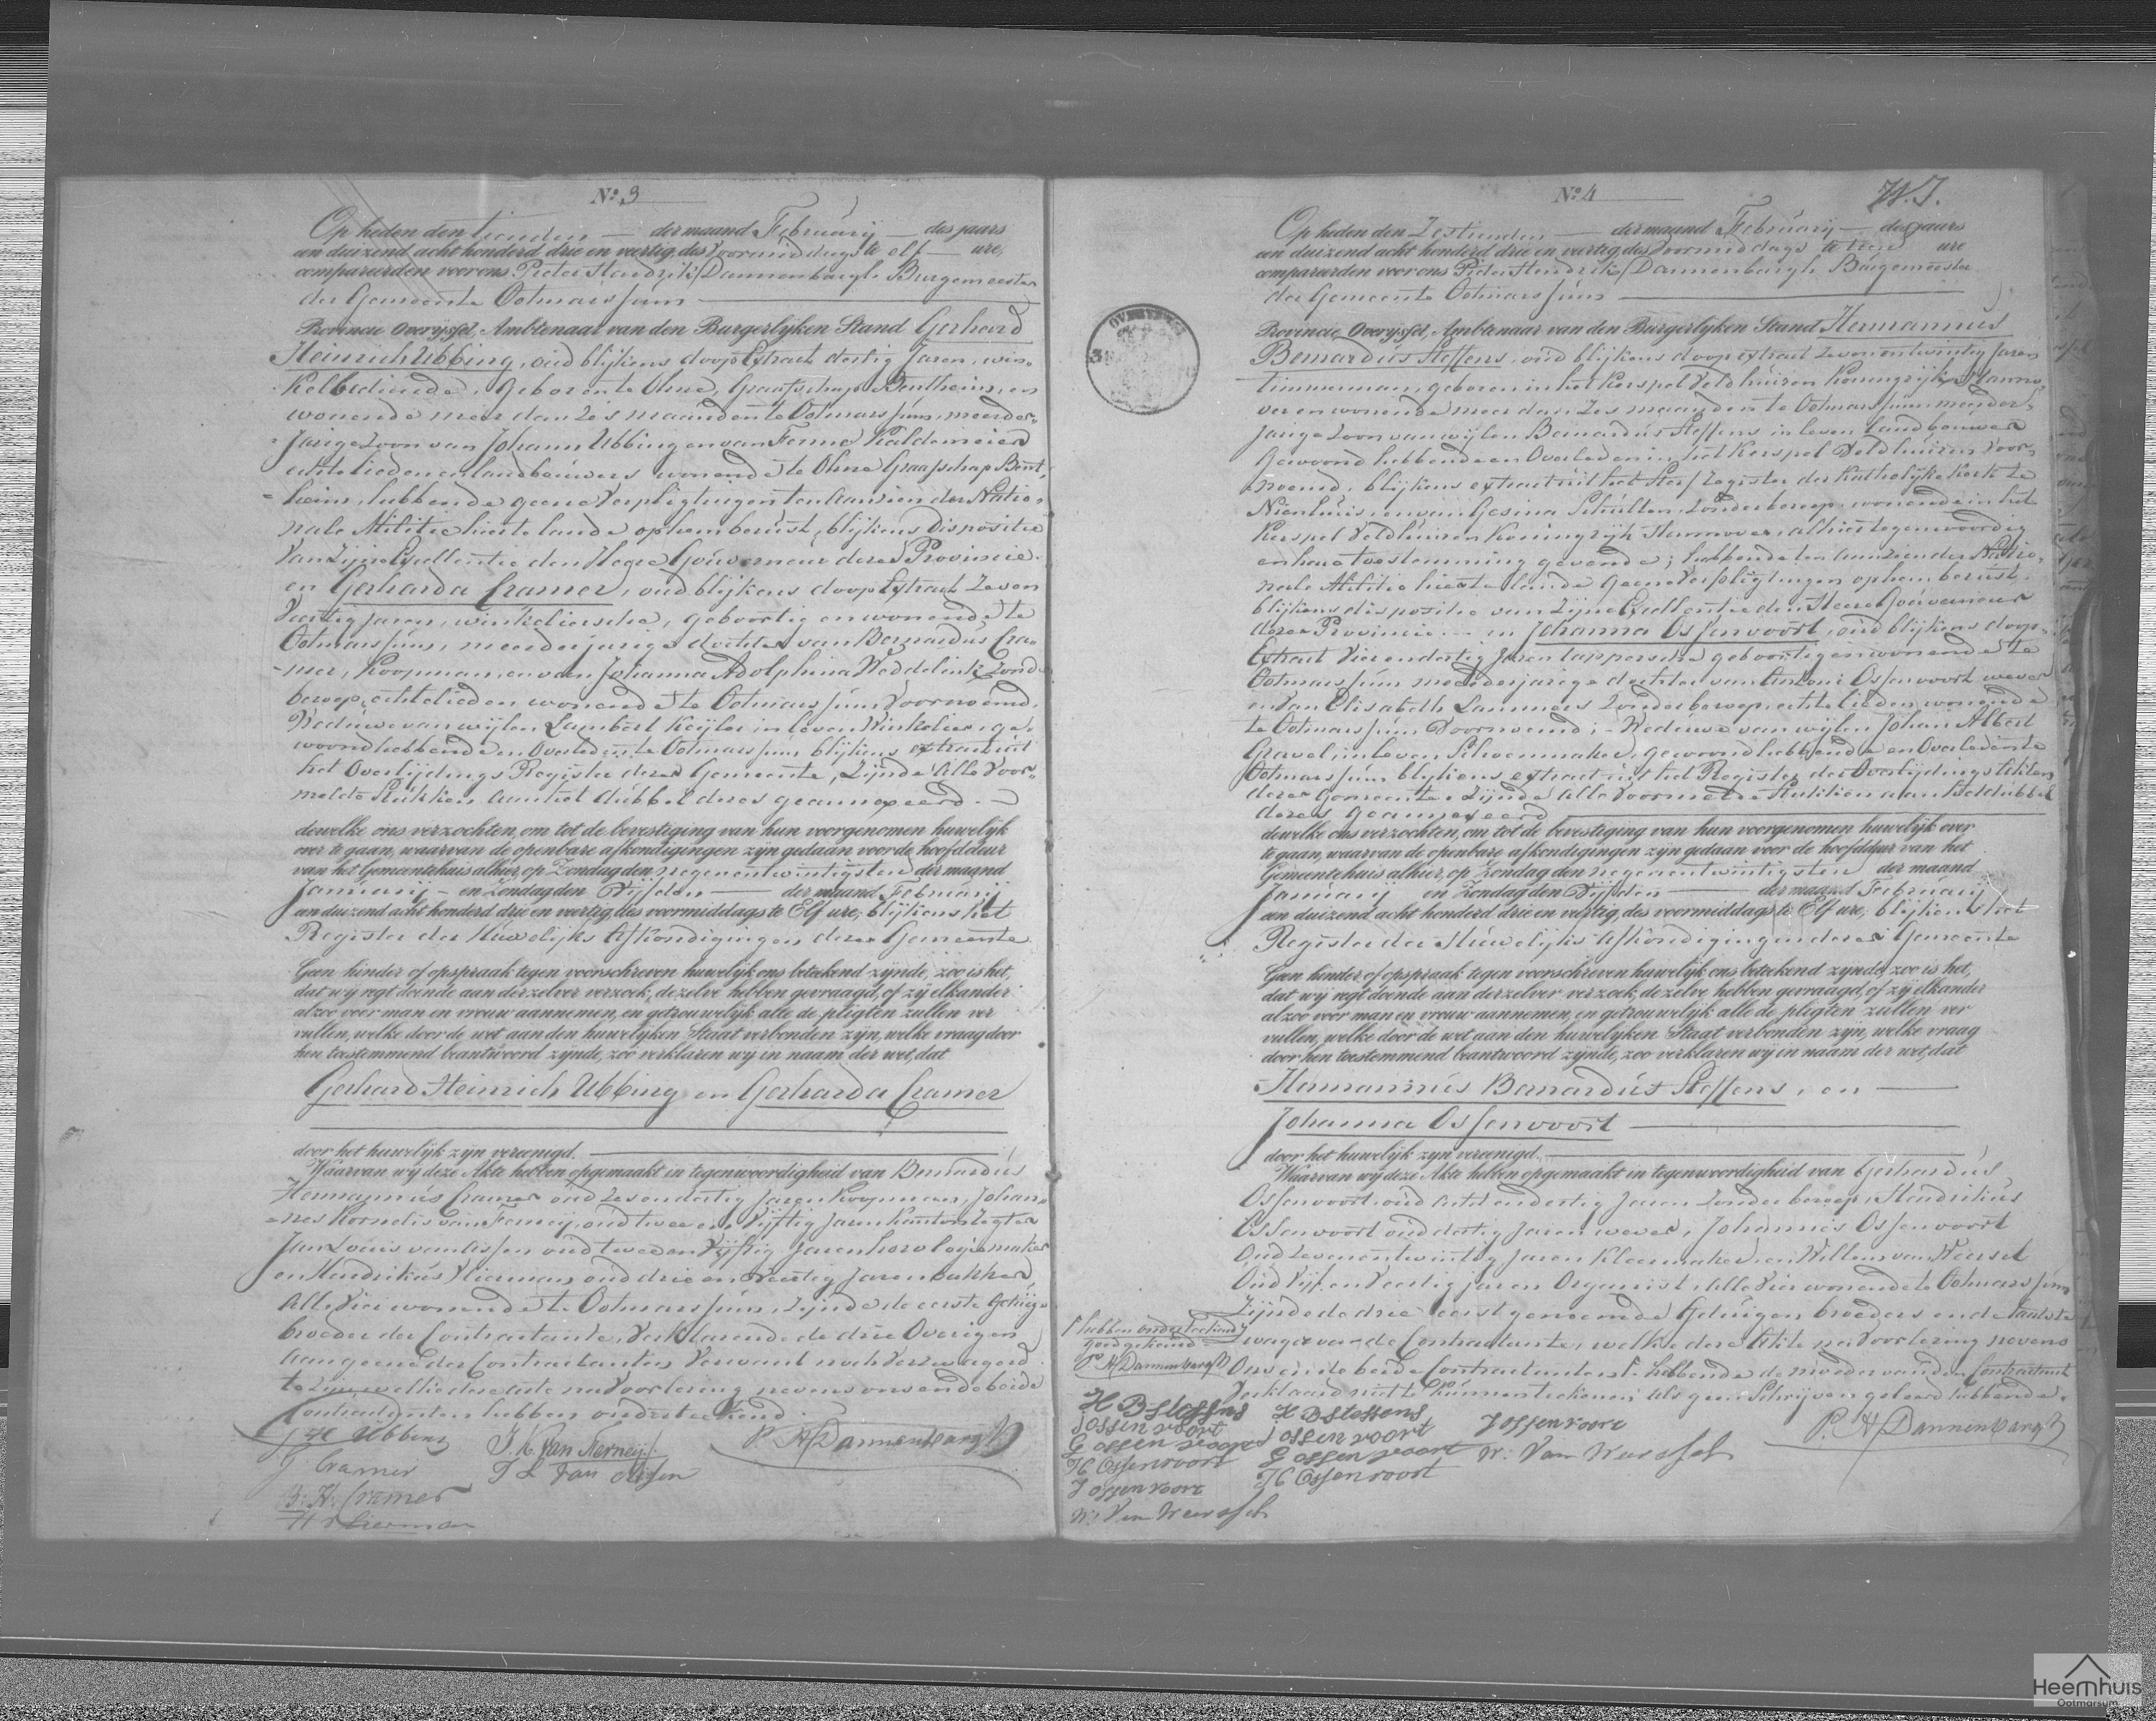 Nº 3
Op heden den tienden der maand Februarij des jaars
een duizend acht honderd drie en veertig, des Voormiddags te elf ure,
compareerden voor ons Pieter Hendrik Dannenbargh Burgemeester
der Gemeente Ootmarssum
Provincie Overijssel, Ambtenaar van den Burgerlyken Stand Gerhard
Heinrich Ubbing, oud blijkens doop Extract dertig Jaren, win-
kelbediende, Geboren te Ohne, Graafschap Bentheim, en
wonende meer dan zes maanden te Ootmarssum, meerder-
Jarige Zoon van Johann Ubbing en van Fenne Kaldemeier
echtelieden en landbouwers wonende te Ohne Graafschap Bent
heim, hebbende geene Verpligtingen ten Aanzien der Natio-
nale Militie hier te lande op hem berust, blijkens Dispositie
Van Zijne Excellentie den Heere Gouverneur dezer Provincie
en Gerharda Cramer, oud blijkens doop Extract Zeven
Veertig jaren, winkeliersche, geboortig en wonende te
Ootmarssum, meerderjarige dochter van Bernardus Cra-
mer, Koopman, en van Johanna Adolphina Weddelink Zond
beroep, echtelieden wonende te Ootmarssum Voornoemd,
Weduwe van wijlen Lambert Keijler in leven Winkelier, ge-
woond hebbende en Overleden te Ootmarssum blijkens extract uit
het Overlijdings Register dezer Gemeente, Zijnde Alle Voor-
melde Stukken aan het dubbel dezes geannexeerd.
dewelke ons verzochten, om tot de bevestiging van hun voorgenomen huwelijk
over te gaan, waarvan de openbare afkondigingen zijn gedaan voor de hoofddeur
van het Gemeentehuis alhier, op Zondag den negenentwintigsten der maand
Januarij en Zondag den Vijfden der maand Februarij
een duizend acht honderd drie en veertig, des voormiddags te Elf ure, blijkens het
Register der Huwelijks Afkondigingen dezer Gemeente
Geen hinder of opspraak tegen voorschreven huwelijk ons betekend zijnde, zoo is het,
dat wij regt doende aan derzelver verzoek, dezelve hebben gevraagd, of zij elkander
alzoo voor man en vrouw aannemen, en getrouwelijk alle de pligten zullen ver
vullen, welke door de wet aan den huwelijken Staat verbonden zijn, welke vraag door
hen toestemmend beantwoord zynde, zoo verklaren wy in naam der wet, dat
Gerhard Heinrich Ubbing en Gerharda Cramer
door het huwelijk zijn vereenigd.
Waarvan wij deze Akte hebben opgemaakt in tegenwoordigheid van Bernardus
Hermannus Cramer oud Zesendertig Jaren Koopman, Johan-
nes Kornelis van Ferneij, oud twee en Vijftig Jaren Kantonregter
Jan Louis van Olifsen oud twee en Vijftig Jaren horologiemaker
en Hendrikus Vlierman, oud drie en Veertig Jaren bakker,
Alle Vier wonende te Ootmarssum, Zijnde de eerste Getuige
broeder der Contractante, Verklarende de drie Overigen
Aan geene der Contractanten Verwant noch Verzwagerd
te Zijn, welke deze acte na Voorlezing nevens ons en de beide
Contractanten hebben onderteekend.
G H Ubbing
J. K. Van Ferneij
P. H. Dannenbargh
G Cramer
J L Van Olifsen
B: H: Cramer
H Vlierman
Nº 4
Op heden den Zestienden der maand Februarij des jaars
een duizend acht honderd drie en veertig, des Voormiddags te tien ure
compareerden voor ons Pieter Hendrik Dannenbargh Burgemeester
der Gemeente Ootmarssum
Provincie Overijssel, Ambtenaar van den Burgerlyken Stand Hermannus
Bernardus Steffens, oud blijkens doop extract Zevenentwintig Jaren
timmerman, geboren in het Kerspel Veldhuizen Koningrijk Hanno-
ver en wonende meer dan Zes maanden te Ootmarssum, meerder-
jarige Zoon van wijlen Bernardus Steffens in leven landbouwer
Gewoond hebbende en Overleden in het Kerspel Veldhuizen Voor-
noemd, blijkens extract uit het Sterf register der Katholijke Kerk te
Nienhuis, en van Gesina Schulten, Zonder beroep, wonende in het
Kerspel Veldhuizen Koningrijk Hannover, alhier tegenwoordig
en hare toestemming gevende; hebbende ten aanzien der Natio-
nale Militie hier te lande geene Verpligtingen op hem berust,
blijkens dispositie van Zijne Excellentie den Heere Gouverneur
dezer Provincie en Johanna Ossenvoort, oud blijkens doop-
Extract Vier en dertig Jaren tappersche geboortig en wonende te
Ootmarssum meerderjarige dochter van Antoni Ossenvoort wever
en Van Elisabeth Lammers Zonder beroep, echtelieden wonende
te Ootmarssum Voornoemd; Weduwe van wijlen Johan Albert
Gravel, in leven Schoenmaker, gewoond hebbende en Overleden te
Ootmarssum blijkens extract uit het Register der Overlijdings Akten
dezer Gemeente, Zijnde Alle Voormelde Stukken aan het dubbel
dezes geannexeerd
dewelke ons verzochten, om tot de bevestiging van hun voorgenomen huwelijk over
te gaan, waarvan de openbare afkondigingen zijn gedaan voor de hoofddeur van het
Gemeentehuis alhier, op Zondag den negenentwintigsten der maand
Januarij en Zondag den Vijfden der maand Februarij
een duizend acht honderd drie en veertig, des voormiddags te Elf ure, blijkens het
Register der Huwelijks Afkondigingen dezer Gemeente
Geen hinder of opspraak tegen voorschreven huwelijk ons betekend zynde, zoo is het,
dat wij regt doende aan derzelver verzoek, dezelve hebben gevraagd, of zij elkander
alzoo voor man en vrouw aannemen, en getrouwelijk alle de pligten zullen ver
vullen, welke door de wet aan den huwelyken Staat verbonden zijn, welke vraag
door hen toestemmend beantwoord zijnde, zoo verklaren wij in naam der wet, dat
Hermannus Bernardus Steffens, en
Johanna Ossenvoort
door het huwelijk zijn vereenigd.
Waarvan wij deze Akte hebben opgemaakt in tegenwoordigheid van Gerhardus
Ossenvoort, oud acht en dertig Jaren Zonder beroep, Hendrikus
Ossenvoort oud dertig Jaren wever, Johannes Ossenvoort
Oud Zevenentwintig Jaren Kleermaker, en Willem van Weersel
Oud Vijf en Veertig jaren Organist, Alle Vier wonende te Ootmarssum
Zijnde de drie eerst genoemde Getuigen broeders en de laatste
zwager van de Contractante, welke deze Akte na Voorlezing nevens
Ons en de beide Contractanten hebbende de moeder van den Contractant
Verklaard niet te kunnen teekenen als geen Schrijven geleerd hebbende.
hebben onderteekend
goedgekeurd
P. H. Dannenbargh
H B Steffens
J ossenvoort
G ossenvoort
H Ossenvoort
J ossenvoort
W: Van Weersel
H B Steffens
J ossenvoort
G ossenvoort
H Ossenvoort
J ossenvoort
W: Van Weersel
P. H. Dannenbargh
Heemhuis
Ootmarsum